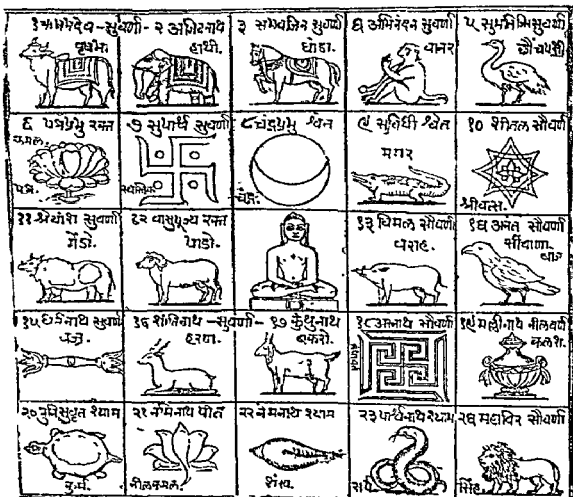 १ ऋषभदेव-सुवर्णा-
वृषभ.
२ अजितनाथ
हाथी.
३ संभवजिन सुवर्णा
घोडा.
४ अभिनंदन सुवर्णा
वानर
५ सुमतिजिन सुवर्णा
क्रौंचपक्षी
६ पद्मप्रभु रक्त
कमल.
पद्म.
७ सुपार्श्व सुवर्णा
स्वस्तिक
८ चंद्रप्रभु श्वेत
चंद्र.
९ सुविधी श्वेत
मगर
१० शीतल सौवर्ण
श्रीवत्स.
११ श्रेयांश सुवर्णा
गेंडो.
१२ वासुपूज्य रक्त
पाडो.
१३ विमल सौवर्णा
वराह.
१४ अनंत सौवर्णा
सींचाणा
बाज
१५ धर्मनाथ सुवर्ण
वज्र.
१६ शांतिनाथ-सुवर्णा-
हरण.
१७ कुंथुनाथ
बकरो.
१८ अरनाथ सौवर्णा
१९ मल्लीनाथ नीलवर्ण
कलश.
२० मुनिसुव्रत श्याम
कूर्म.
२१ नमिनाथ पीत
नीलकमल.
२२ नेमनाथ श्याम
शंख.
२३ पार्श्वनाथ श्याम
सर्प
२४ महाविर सौवर्णा
सिंह.